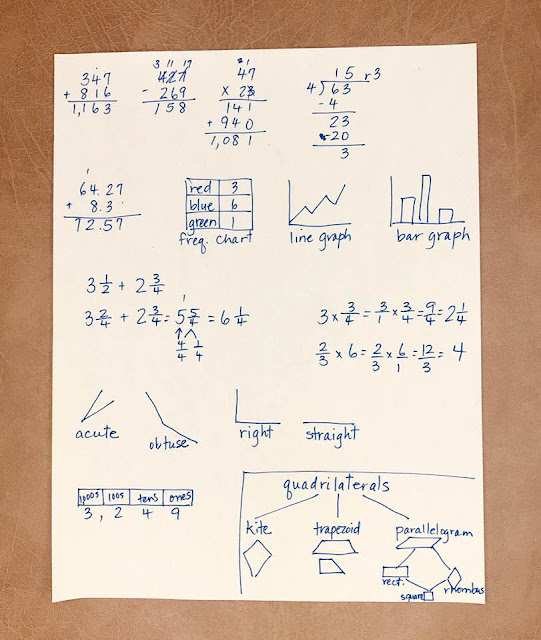 347
+ 816
1,163
3 11 17
427
- 269
158
2 1
47
x 23
141
+ 940
1,081
15 r3
4)63
-4
23
-20
3
1
64.27
+ 8.3
72.57
red 3
blue 6
green 1
freq. chart
line graph
bar graph
3 1/2 + 2 3/4
3 2/4 + 2 3/4 = 5 5/4 = 6 1/4
1
4/4 1/4
3 x 3/4 = 3/1 x 3/4 = 9/4 = 2 1/4
2/3 x 6 = 2/3 x 6/1 = 12/3 = 4
acute
obtuse
right
straight
1000s 100s tens ones
3, 2 4 9
quadrilaterals
kite trapezoid parallelogram
rect.
square
rhombus